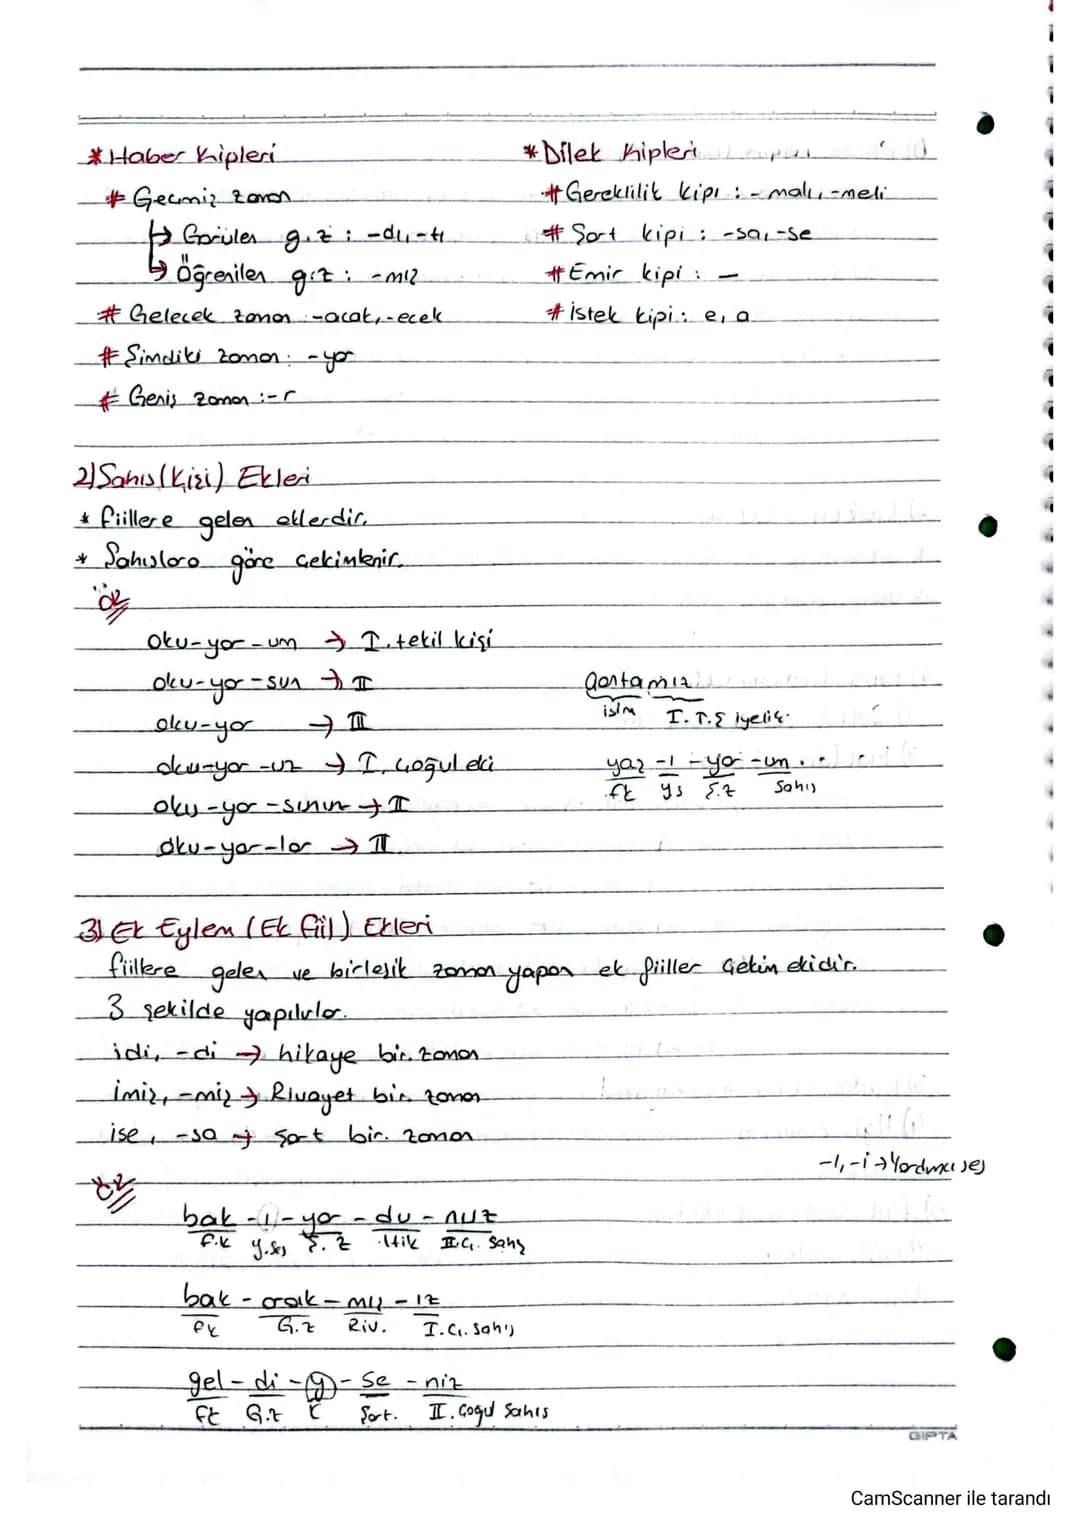 * Haber Kipleri
# Geçmiş zaman
↳ Görülen g.z : -dı,-tı
↳ Öğrenilen g.z : -mış
# Gelecek zaman -acak,-ecek
# Şimdiki zaman: -yor
# Geniş zaman :-r
* Dilek Kipleri
# Gereklilik kipi : -malı,-meli
# Şart kipi : -sa,-se
# Emir kipi : —
# İstek kipi : e, a
2) Şahıs (Kişi) Ekleri
* fiillere gelen eklerdir.
* Şahıslara göre çekimlenir.
ÖR
oku-yor-um → I. tekil kişi
oku-yor-sun → II
oku-yor → III
oku-yor-uz → I. çoğul eki
oku-yor-sunuz → II
oku-yor-lar → III
çantamız
isim I. T.Ş iyelik.
yaz -ı -yor -um
fk ys Ş.z Şahıs
3) Ek Eylem (Ek fiil) Ekleri
fiillere gelen ve birleşik zaman yapan ek fiiller çekim ekidir.
3 şekilde yapılırlar.
idi, -di → hikaye bir. zaman
imiş, -miş → Rivayet bir. zaman
ise, -sa → Şart bir. zaman
-ı,-i → Yardımcı ses
ÖR
bak -ı-yor - du - nuz
f.k y.ses Ş.z Hik II.Ç. Şahış
bak - acak - mış - ız
fk G.z Riv. I.Ç. Şahış
gel - di - y - se - niz
fk G.z K Şart. II. Çoğul Şahıs
GIPTA
CamScanner ile tarandı